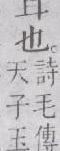 也。
詩毛傳
天子玉